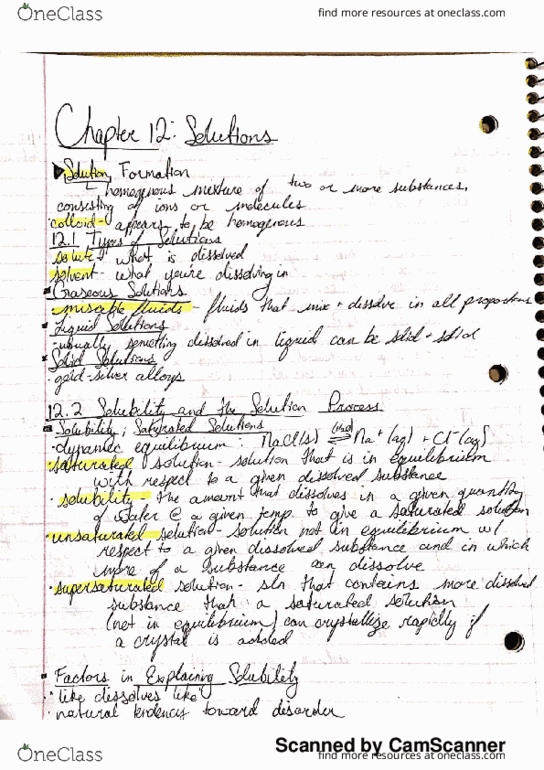 OneClass
find more resources at oneclass.com
Chapter 12: Solutions
Solution Formation
homogenous mixture of two or more substances,
consisting of ions or molecules
colloid - appears to be homogenous
12.1 Types of Solutions
solute - what is dissolved
solvent - what you're dissolving in
Gaseous Solutions
miscible fluids - fluids that mix + dissolve in all proportions
Liquid Solutions
usually something dissolved in liquid can be solid + solid
Solid Solutions
gold-silver alloys
12.2 Solubility and the Solution Process
Solubility; Saturated Solutions
dynamic equilibrium: NaCl(s) ⇌ Na+(aq) + Cl-(aq)
saturated solution - solution that is in equilibrium
with respect to a given dissolved substance
solubility - the amount that dissolves in a given quantity
of water @ a given temp. to give a saturated solution
unsaturated solution - solution not in equilibrium w/
respect to a given dissolved substance and in which
more of a substance can dissolve
supersaturated solution - sln that contains more dissolved
substance than a saturated solution
(not in equilibrium) can crystallize rapidly if
a crystal is added
Factors in Explaining Solubility
"like dissolves like"
natural tendencies toward disorder
Scanned by CamScanner
OneClass
find more resources at oneclass.com